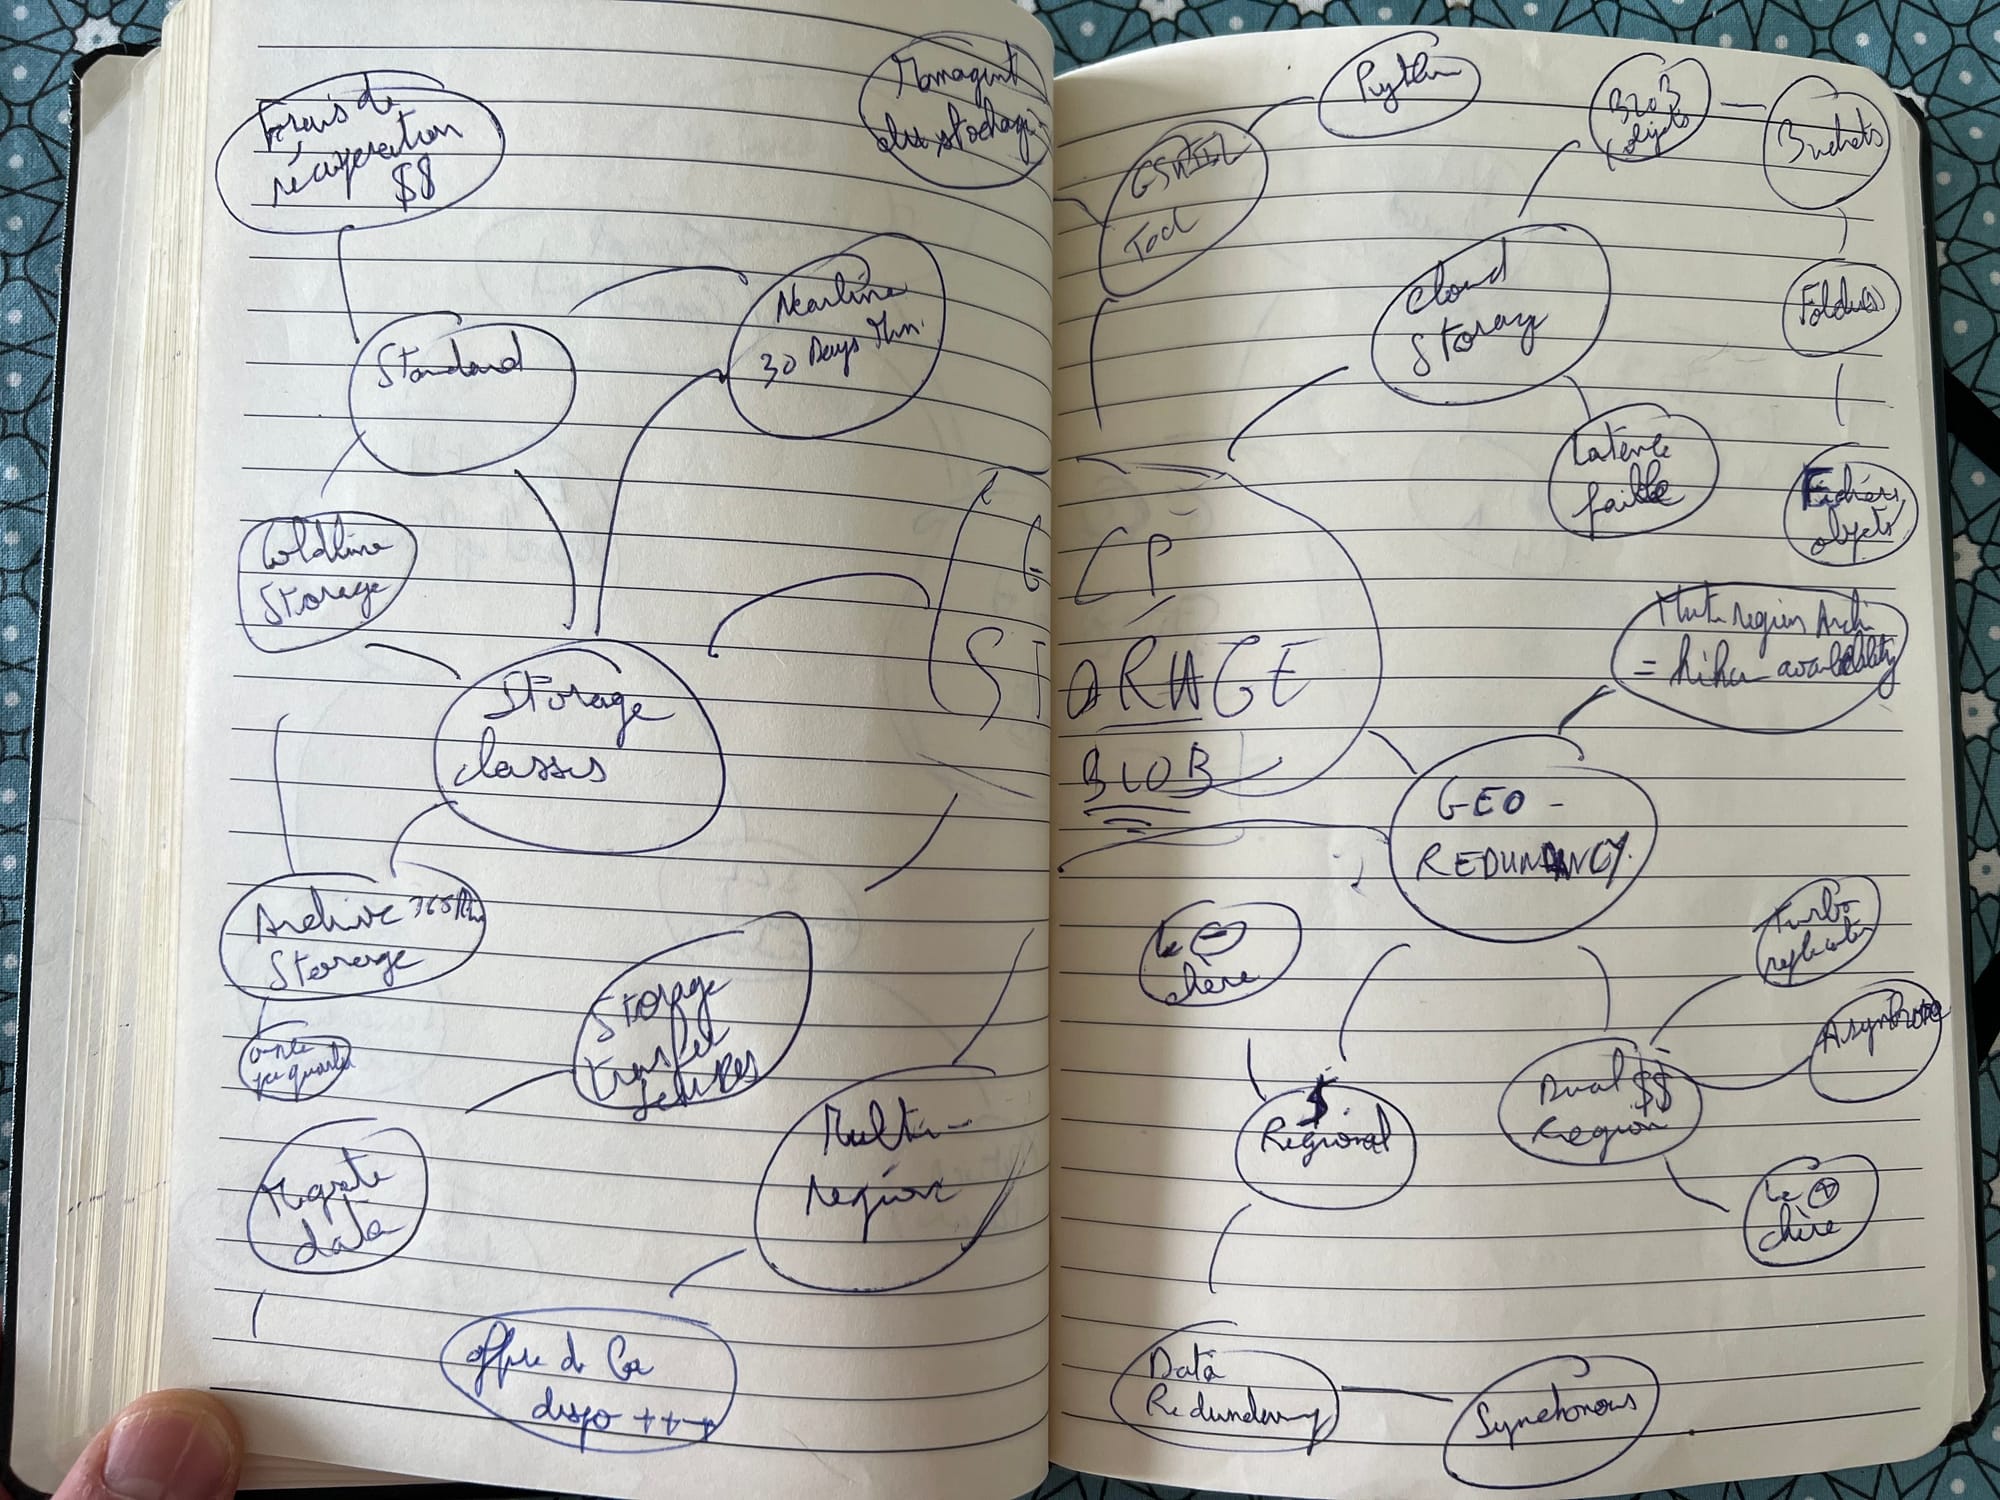 Frais de
récuperation
$$
Managment
du stockage
Standard
Nearline
30 Days Min.
Coldline
Storage
Storage
classes
Archive 365
Storage
Storage
transfer
Migrate
data
Multi-
region
offre de la
dispo +++
GSUTIL
Tool
Python
BLOB
objets
Buckets
Cloud
Storage
Folders
Latence
faible
Fichiers,
objets
GCP
STORAGE
BLOB
Multi region Archi
= higher availability
GEO-
REDUNDANCY.
Le ⊖
chère
Turbo
replication
Asynchrone
$
Regional
Dual $$
Region
Le ⊕
chère
Data
Redundancy
Synchonous